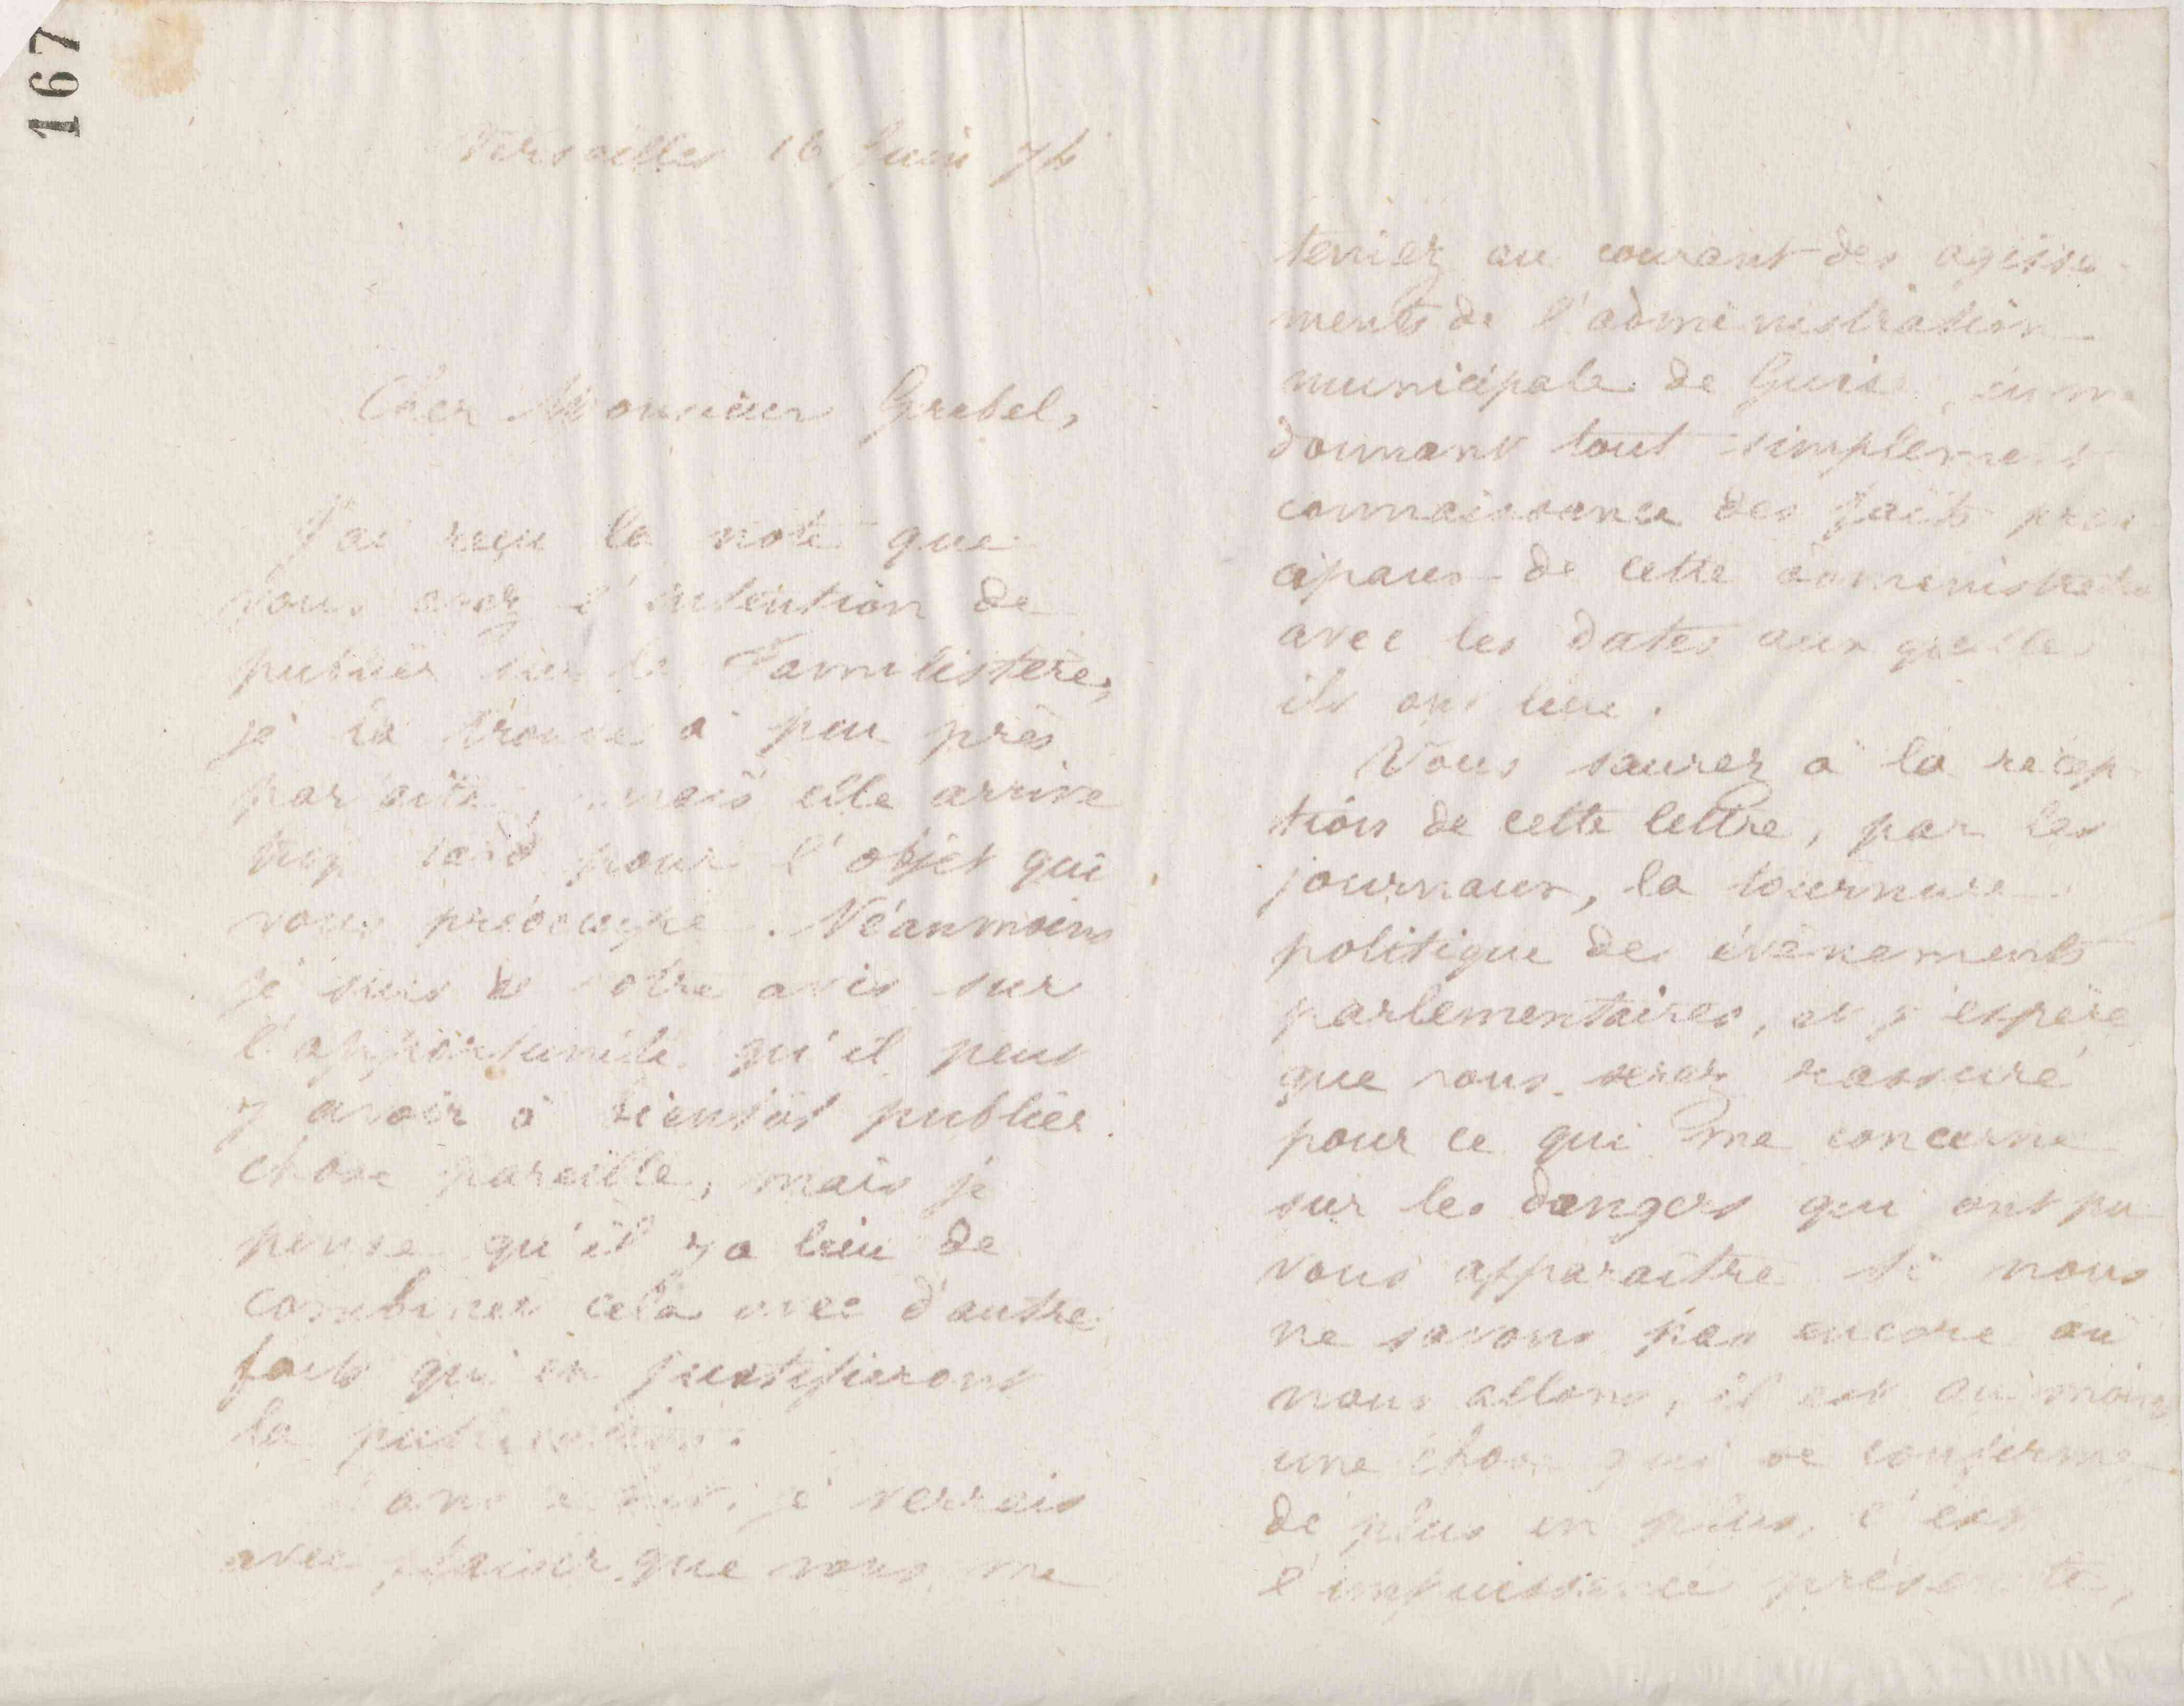 167
Versailles 16 Juin 74
Cher Monsieur Grebel,
J'ai reçu la note que
vous avez l'intention de
publier sur le Familistère,
je la trouve à peu près
parfaite, mais elle arrive
trop tard pour l'objet qui
vous préoccupe. Néanmoins
je suis de votre avis sur
l'opportunité qu'il peut
y avoir à bientôt publier
chose pareille, mais je
pense qu'il y a lieu de
combiner cela avec d'autres
faits qui en justifieront
la publication.
je verrais
avec plaisir que vous me
teniez au courant des agisse-
ments de l'administration
municipale de Guise, en me
donnant tout simplement
connaissance des faits prin-
cipaux de cette administration
avec les dates aux quelles
ils ont lieu.
Vous saurez à la récep-
tion de cette lettre, par les
journaux, la tournure
politique des évènements
parlementaires, et j'espère
que vous serez rassuré
pour ce qui me concerne
sur les dangers qui ont pu
vous apparaître si nous
ne savons pas encore où
nous allons, il est au moins
une chose qui se confirme
de plus en plus, c'est
l'impuissance présente,